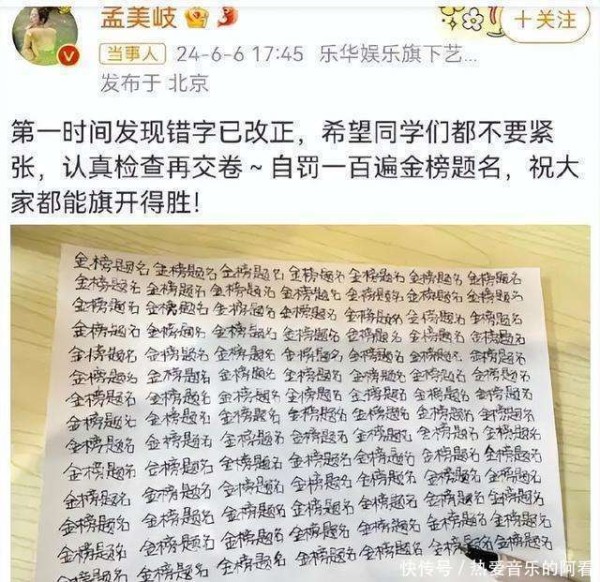 孟美岐
当事人 24-6-6 17:45 乐华娱乐旗下艺...
发布于 北京
+关注
第一时间发现错字已改正，希望同学们都不要紧
张，认真检查再交卷～自罚一百遍金榜题名，祝大
家都能旗开得胜！
金榜题名 金榜题名 金榜题名 金榜题名 金榜题名 金榜题名 金榜题名
金榜题名 金榜题名 金榜题名 金榜题名 金榜题名 金榜题名 金榜题名
金榜题名 金榜题名 金榜题名 金榜题名 金榜题名 金榜题名 金榜题名
金榜题名 金榜题名 金榜题名 金榜题名 金榜题名 金榜题名 金榜题名
金榜题名 金榜题名 金榜题名 金榜题名 金榜题名 金榜题名 金榜题名
金榜题名 金榜题名 金榜题名 金榜题名 金榜题名 金榜题名 金榜题名
金榜题名 金榜题名 金榜题名 金榜题名 金榜题名 金榜题名 金榜题名
金榜题名 金榜题名 金榜题名 金榜题名 金榜题名 金榜题名 金榜题名
金榜题名 金榜题名 金榜题名 金榜题名 金榜题名 金榜题名 金榜题名
金榜题名 金榜题名 金榜题名 金榜题名 金榜题名 金榜题名 金榜题名
金榜题名 金榜题名 金榜题名 金榜题名 金榜题名 金榜题名 金榜题名
金榜题名 金榜题名 金榜题名 金榜题名 金榜题名 金榜题名 金榜题名
金榜题名 金榜题名 金榜题名 金榜题名 金榜题名 金榜题名 金榜题名
金榜题名 金榜题名 金榜题名 金榜题名 金榜题名
快传号／热爱音乐的阿看